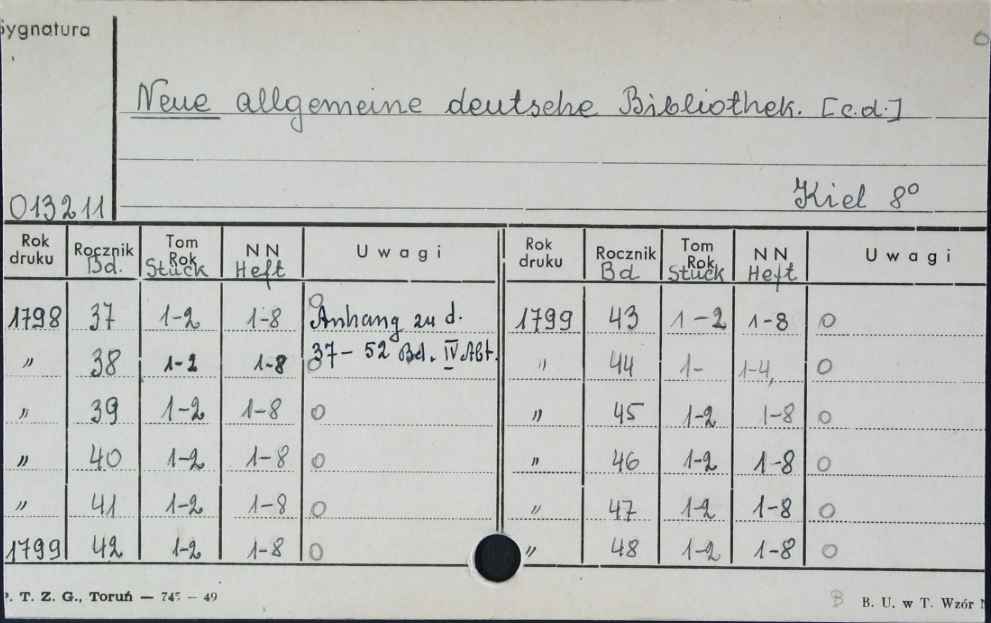 Sygnatura
Neue allgemeine deutsche Bibliothek. [c.d.]
Kiel 8°
013211
Rok druku Rocznik Bd. Tom Rok Stück NN Heft Uwagi Rok druku Rocznik Bd Tom Rok Stück NN Heft Uwagi
1798 37 1-2 1-8 Anhang zu d. 1799 43 1-2 1-8 o
" 38 1-2 1-8 37-52 Bd. IV Abt. " 44 1- 1-4, o
" 39 1-2 1-8 o " 45 1-2 1-8 o
" 40 1-2 1-8 o " 46 1-2 1-8 o
" 41 1-2 1-8 o " 47 1-2 1-8 o
1799 42 1-2 1-8 o " 48 1-2 1-8 o
P. T. Z. G., Toruń — 745 — 49 B B. U. w T. Wzór